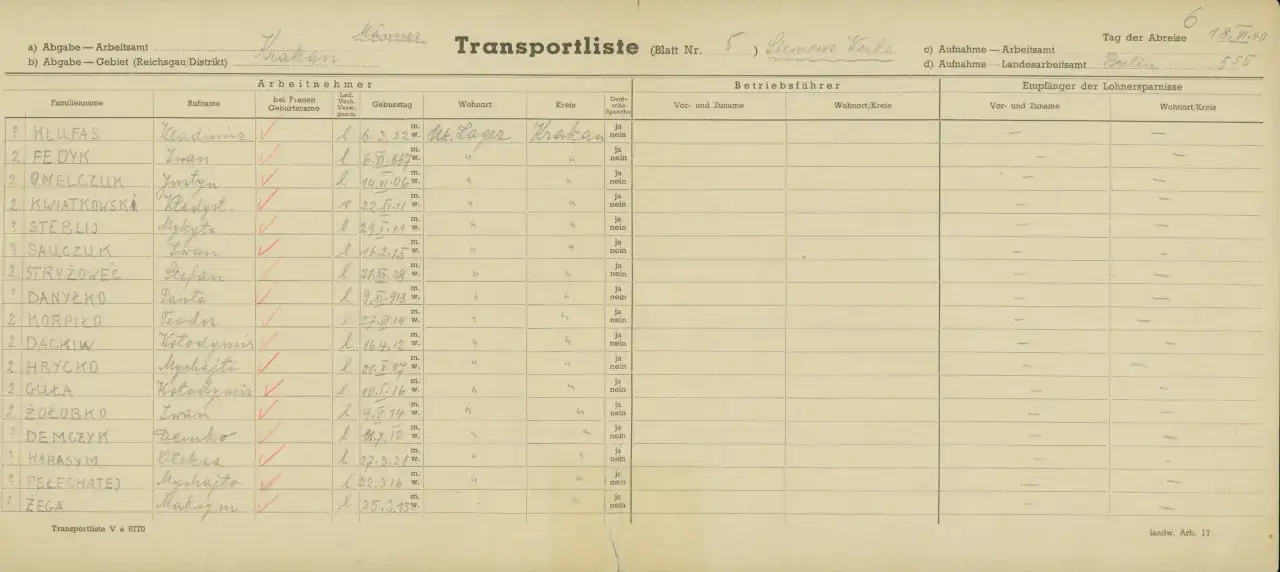 6
Männer
a) Abgabe — Arbeitsamt Krakau
Transportliste (Blatt Nr. 5) Siemens Werke
Tag der Abreise 18.VI.40
c) Aufnahme — Arbeitsamt
b) Abgabe — Gebiet (Reichsgau/Distrikt)
d) Aufnahme — Landesarbeitsamt Berlin 555
Arbeitnehmer Betriebsführer Empfänger der Lohnersparnisse
Familienname Rufname bei Frauen Geburtsname Led. Verh. Verw. gesch. Geburtstag Wohnort Kreis Deutsche Sprache Vor- und Zuname Wohnort/Kreis Vor- und Zuname Wohnort/Kreis
KLUFAS Wladimir ✓ l 6.3.22 m. w. Uk. Lager Krakau ja nein — —
2 FEDYK Iwan ✓ l m. w. " " ja nein — —
2 OMELCZUK Justyn ✓ l 14.VI.06 m. w. " " ja nein — —
2 KWIATKOWSKI Władysł. ✓ 22.XI.11 m. w. " " ja nein — —
STEBLIJ Mykyta ✓ l 29.I.11 m. w. " " ja nein — —
SAUCZUK Iwan ✓ l 16.2.15 m. w. " " ja nein — —
2 STRYŻOWEC Stefan ✓ l m. w. " " ja nein — —
DANYŁKO ✓ l m. w. " " ja nein — —
2 KORPIŁO Teodor ✓ m. w. " " ja nein — —
2 DACKIW Wołodymir ✓ l 16.4.12 m. w. " " ja nein — —
2 HRYCKO Mychajło ✓ l m. w. " " ja nein — —
2 GUŁA Wołodymir ✓ l 10.I.16 m. w. " " ja nein — —
2 ŻOŁOBKO Iwan ✓ l 9.V.14 m. w. " " ja nein — —
DEMCZYK Demko ✓ l m. w. " " ja nein — —
HARASYM Oleksa ✓ l 27.3.21 m. w. " " ja nein — —
PEŁECHATEJ Mychajło ✓ l 22.3.16 m. w. " " ja nein — —
2 ŻEGA Maksym ✓ l m. w. " " ja nein — —
Transportliste V a 5770
landw. Arb. 17